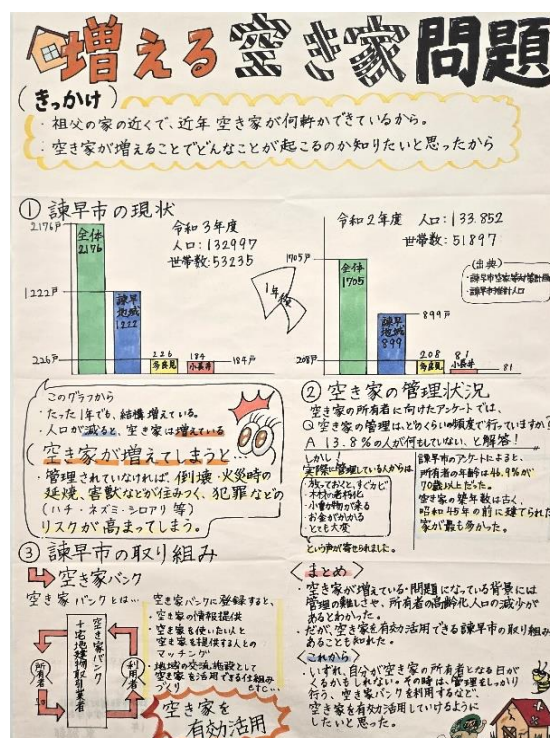 増える空き家問題
きっかけ
・祖父の家の近くで、近年 空き家が何軒かできているから。
・空き家が増えることでどんなことが起こるのか知りたいと思ったから
① 諫早市の現状
2176戸
全体
2176
1222戸
諫早
地域
1222
226戸
226
多良見
184
小長井
184戸
令和3年度
人口:132997
世帯数:53235
1年後
令和2年度 人口:133.852
世帯数:51897
1705戸
全体
1705
諫早
地域
899
899戸
208戸
208
多良見
81
小長井
81
(出典)
・諫早市推計人口
このグラフから
・たった1年でも、結構増えている。
・人口が減ると、空き家は増えている
空き家が増えてしまうと…
・管理されていなければ、倒壊・火災時の
延焼、害獣などが住みつく、犯罪などの
(ハチ・ネズミ・シロアリ 等)
リスクが高まってしまう。
② 空き家の管理状況
空き家の所有者に向けたアンケートでは、
Q 空き家の管理は、どれくらいの頻度で行っていますか?
A 13.8%の人が何もしていない、と解答!
しかし!
実際に管理している人からは
・放っておくと、すぐカビ
・木材の老朽化
・小動物が来る
・お金がかかる
・とても大変
という声が寄せられました。
諫早市のアンケートによると、
所有者の年齢は46.9%が
70歳以上だった。
空き家の築年数は古く、
昭和45年の前に建てられた
家が最も多かった。
③ 諫早市の取り組み
空き家バンク
空き家バンクとは…
所有者
空き家バンク
+宅地建物取引業者
利用者
空き家バンクに登録すると、
・空き家の情報提供
・空き家を使いたい人と
空き家を提供する人との
マッチング
・地域の交流施設として
空き家を活用できる仕組み
づくり
空き家を
有効活用
まとめ
・空き家が増えている・問題になっている背景には
管理の難しさや、所有者の高齢化、人口の減少が
あるとわかった。
・だが、空き家を有効活用できる諫早市の取り組み
があることも知れた。
これから
・いずれ、自分が空き家の所有者となる日が
くるかもしれない。その時は、管理をしっかり
行う、空き家バンクを利用するなど、
空き家を有効活用していけるように
したいと思った。